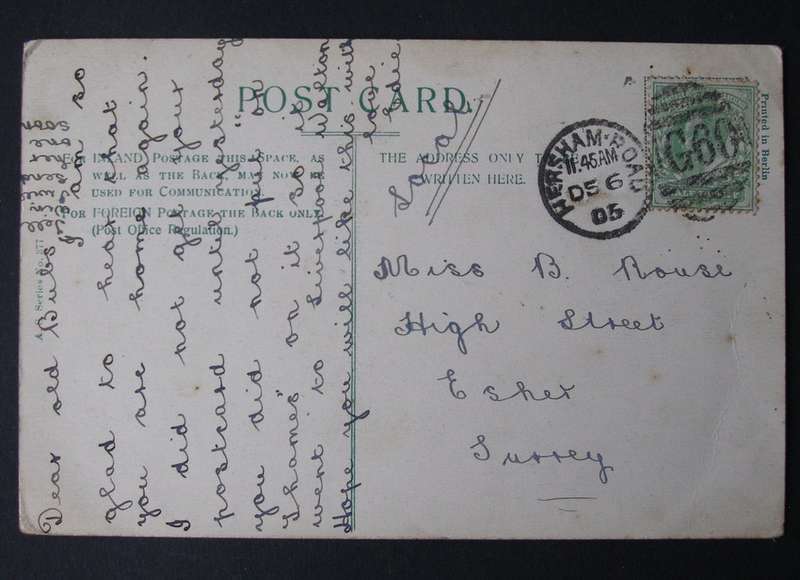 POST CARD.
FOR INLAND POSTAGE THIS SPACE, AS
WELL AS THE BACK, MAY NOW BE
USED FOR COMMUNICATION.
FOR FOREIGN POSTAGE THE BACK ONLY.
(Post Office Regulation.)
THE ADDRESS ONLY TO
WRITTEN HERE.
Printed in Berlin
Series No. 577
HERSHAM·ROAD
11.45AM
DE 6
05
G60
Miss B. Rouse
High Street
Esher
Surrey
Dear old Bubs
I am so
glad to hear that
you are home again.
I did not get your
postcard until yesterday
you did not put "on
Thames" on it so it
went to Liverpool Walton
Hope you will like this with
love
Edie